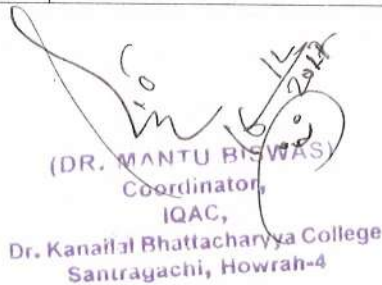 (DR. MANTU BISWAS)
Coordinator,
IQAC,
Dr. Kanailal Bhattacharyya College
Santragachi, Howrah-4